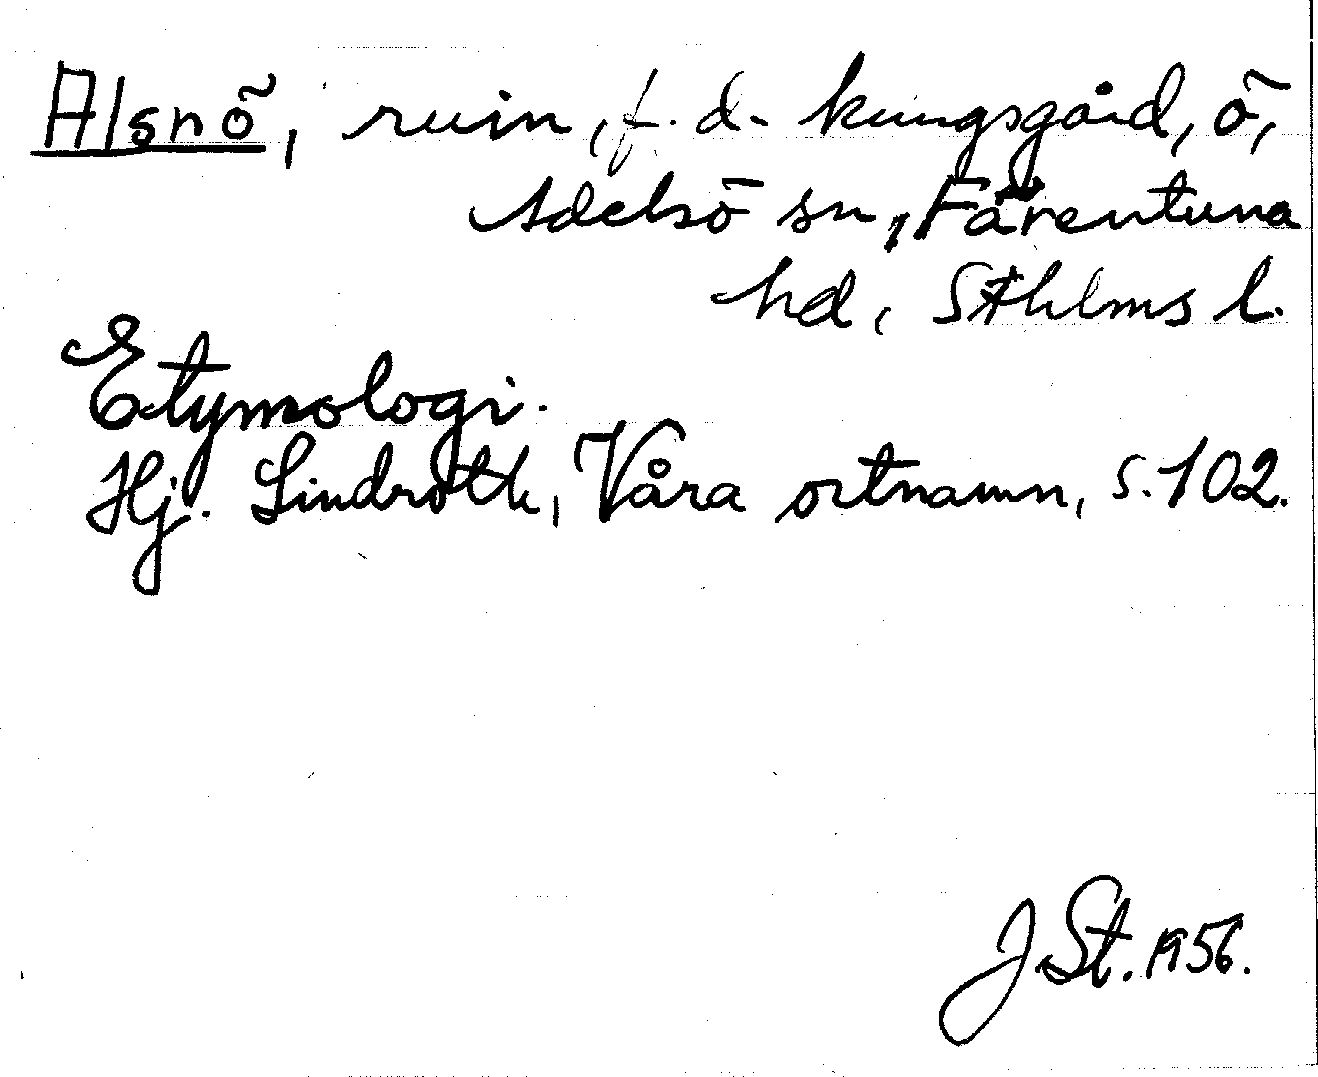 Alsnö, ruin, f.d. kungsgård, ö,
Adelsö sn, Färentuna
hd, Sthlms l.
Etymologi.
Hj. Lindroth, Våra ortnamn, s. 102.
J St. 1956.